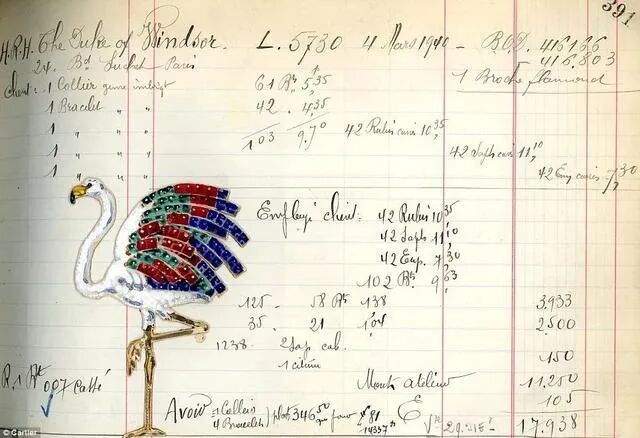 391
H.R.H. The Duke of Windsor. L. 5730 4 Mars 1940 - BOD. 416166
24. Bd Suchet - Paris 416.803
client: 1 Collier 61 Bts 5,35 1 Broche flamand
1 Bracelet 42. 4,35
1 " " 103 9,70 42 Rubis carrés 10,35
1 " " 42 Saphs carrés 11,10
1 " " 42 Em carrés 7,30
Employé client: 42 Rubis 10,35
42 Saphs 11,10
42 Em. 7,30
102 Bts 9,63
125 - 58 Bts 1,38 3.933
35. 21 1,04 2.500
1238 - 2 Sap cab.
1 citrine 150
R. 1 Bt 0,07 Cassé Monts atelier 11.250
Avoir = 1 Collier 105
4 Bracelets plat 346,50 17.938
© Cartier